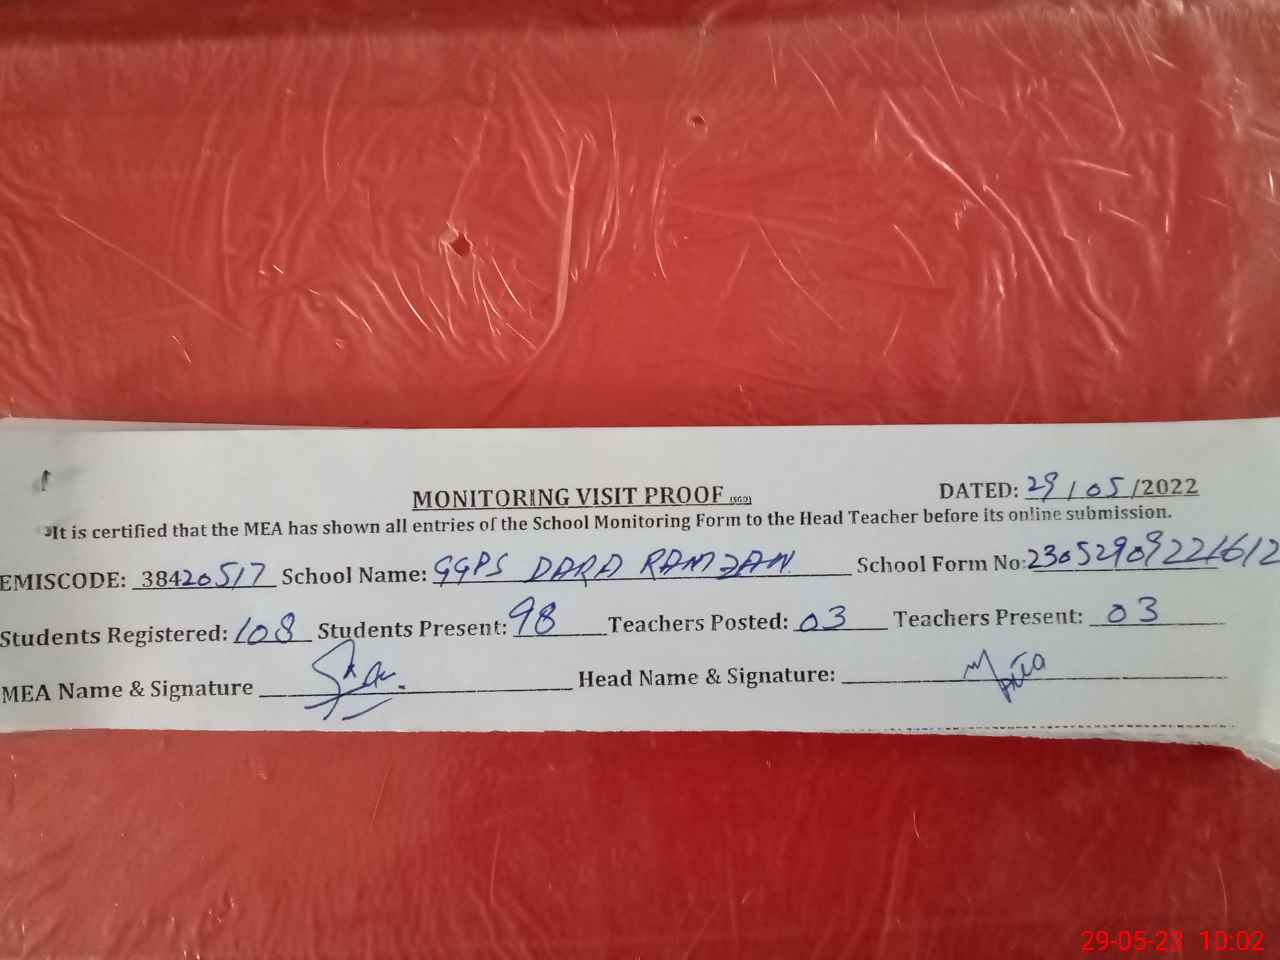 MONITORING VISIT PROOF (SGD) DATED: 29/05/2022
It is certified that the MEA has shown all entries of the School Monitoring Form to the Head Teacher before its online submission.
EMISCODE: 38420517 School Name: GGPS DARA RAMZAN School Form No: 23052909221612
Students Registered: 108 Students Present: 98 Teachers Posted: 03 Teachers Present: 03
MEA Name & Signature Head Name & Signature:
29-05-23 10:02